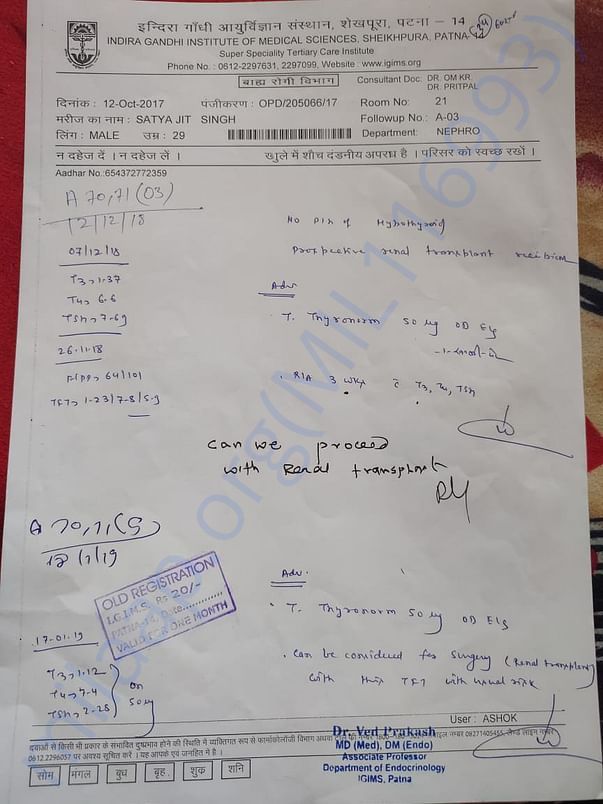 इन्दिरा गाँधी आयुर्विज्ञान संस्थान, शेखपूरा, पटना – 14
INDIRA GANDHI INSTITUTE OF MEDICAL SCIENCES, SHEIKHPURA, PATNA-14
Super Speciality Tertiary Care Institute
Phone No. : 0612-2297631, 2297099, Website : www.igims.org
बाह्य रोगी विभाग
Consultant Doc: DR. OM KR.
DR. PRITPAL
दिनांक : 12-Oct-2017 पंजीकरण : OPD/205066/17 Room No: 21
मरीज का नाम : SATYA JIT SINGH Followup No.: A-03
लिंग : MALE उम्र : 29 Department: NEPHRO
न दहेज दें । न दहेज लें । खुले में शौच दंडनीय अपराध है । परिसर को स्वच्छ रखें ।
Aadhar No.:654372772359
A 70,71 (03)
12/12/18
07/12/18
T3> 1.37
T4> 6.6
TSH> 7.69
26.11.18
64/101
TFT> 1.23/7.8/5.9
Hypothyroid
prospective renal transplant recipient
Adv
T. Thyronorm 50 μg OD E/S
R/A 3 wks c T3, T4, TSH
can we proceed
with Renal transplant
12/1/19
OLD REGISTRATION
I.G.I.M.S. Rs 20/-
PATNA-14, Date.............
VALID FOR ONE MONTH
17-01-19
T3> 1.12
T4> 7.4
TSH> 2.28
on
50 μg
Adv.
T. Thyronorm 50 μg OD E/S
Can be considered for surgery (Renal transplant)
with this TFT with usual risk
User : ASHOK
दवाओं से किसी भी प्रकार के संभावित दुष्प्रभाव होने की स्थिति में व्यक्तिगत रूप से फार्माकोलॉजी विभाग अथवा
0612.2296057 पर अवश्य सूचित करें । यह आपके एवं जनहित में है ।
Dr. Ved Prakash
MD (Med), DM (Endo)
Associate Professor
Department of Endocrinology
IGIMS, Patna
सोम मंगल बुध बृह. शुक्र शनि
milaap.org(MIL116993)